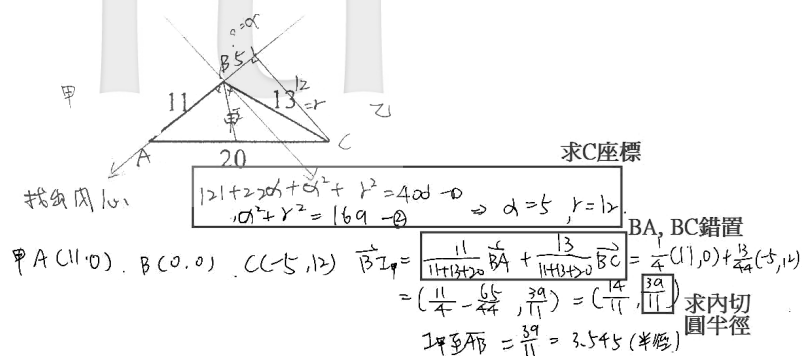 :=α
B 5
甲
11
甲
13
12
=r
乙
A
C
20
求C座標
找出內心
121+22α+α²+r²=400-①
α²+r²=169-② ⇒ α=5, r=12.
BA, BC錯置
甲A(11,0). B(0,0). C(-5,12) BI甲 = 11/(11+13+20) BA + 13/(11+13+20) BC = 1/4(11,0)+13/44(-5,12)
= (11/4 - 65/44, 39/11) = (14/11, 39/11)
求內切
圓半徑
I甲至AB = 39/11 = 3.545 (半徑)